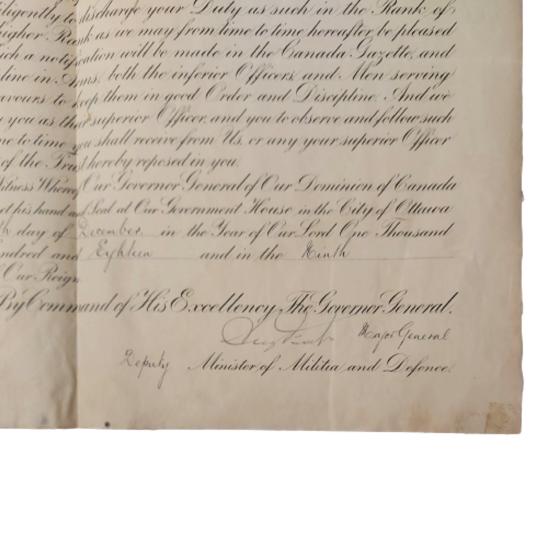 discharge your Duty as such in the Rank of
Rank as we may from time to time hereafter be pleased
such a notification will be made in the Canada Gazette, and
in Arms, both the inferior Officers and Men serving
to keep them in good Order and Discipline. And we
you as their superior Officer, and you to observe and follow such
time to time you shall receive from Us, or any your superior Officer
of the Trust hereby reposed in you.
Witness Whereof Our Governor General of Our Dominion of Canada
set his hand and Seal at Our Government House in the City of Ottawa
day of December in the Year of Our Lord One Thousand
Hundred and Eighteen and in the Ninth
Of Our Reign
By Command of His Excellency, The Governor General.
Major General
Deputy Minister of Militia and Defence.